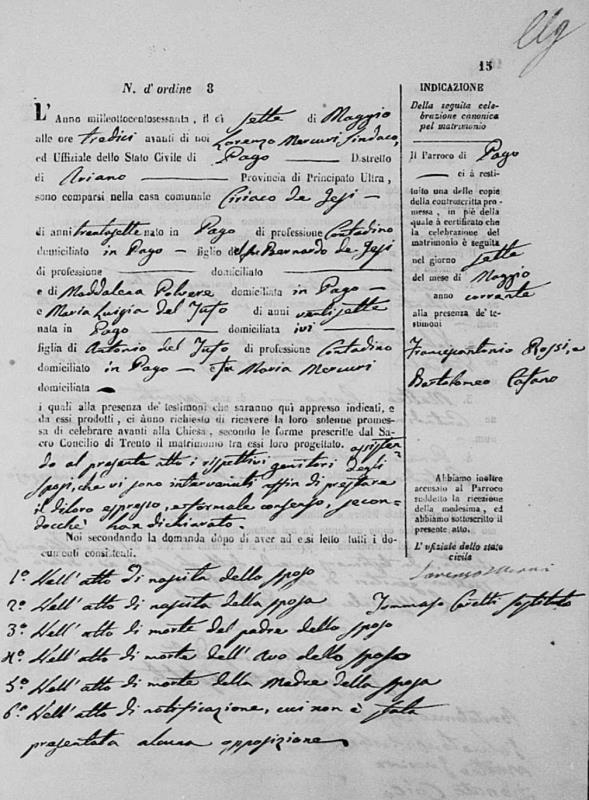 15
N. d'ordine 8
L'Anno milleottocentosessanta, il dì sette di Maggio
alle ore tredici avanti di noi Lorenzo Mercuri Sindaco,
ed Uffiziale dello Stato Civile di Pago Distretto
di Ariano Provincia di Principato Ultra,
sono comparsi nella casa comunale Ciriaco de Jesi
di anni trentasette nato in Pago di professione Contadino
domiciliato in Pago figlio del fu Bernardo de Jesi
di professione domiciliato
e di Maddalena Polvere domiciliata in Pago
e Maria Luigia del Tufo di anni ventisette
nata in Pago domiciliata ivi
figlia di Antonio del Tufo di professione Contadino
domiciliato in Pago e fu Maria Mercuri
domiciliata
i quali alla presenza de' testimoni che saranno quì appresso indicati, e
da essi prodotti, ci ànno richiesto di ricevere la loro solenne promes-
sa di celebrare avanti alla Chiesa, secondo le forme prescritte dal Sa-
cro Concilio di Trento il matrimonio tra essi loro progettato. assisten-
do al presente atto i rispettivi genitori degli
sposi, che vi sono intervenuti affin di prestare
il di loro espresso, e formale consenso, secon-
docchè han dichiarato.
Noi secondando la domanda dopo di aver ad essi letto tutti i do-
cumenti consistenti.
1.° Nell'atto di nascita dello sposo
2.° Nell'atto di nascita della sposa
3.° Nell'atto di morte del padre dello sposo
4.° Nell'atto di morte dell'Avo dello sposo
5.° Nell'atto di morte della Madre della sposa
6.° Nell'atto di notificazione, cui non è stata
presentata alcuna opposizione
INDICAZIONE
Della seguita cele-
brazione canonica
pel matrimonio
Il Parroco di Pago
ci à resti-
tuito una delle copie
della controscritta pro-
messa, in piè della
quale à certificato che
la celebrazione del
matrimonio è seguita
nel giorno sette
del mese di Maggio
anno corrente
alla presenza de' te-
stimoni
Francescantonio Rossi, e
Bartolomeo Catano
Abbiamo inoltre
accusato al Parroco
suddetto la ricezione
della medesima, ed
abbiamo sottoscritto il
presente atto.
L' ufiziale dello stato
civile
Lorenzo Mercuri
Tommaso Coretti Sostituto